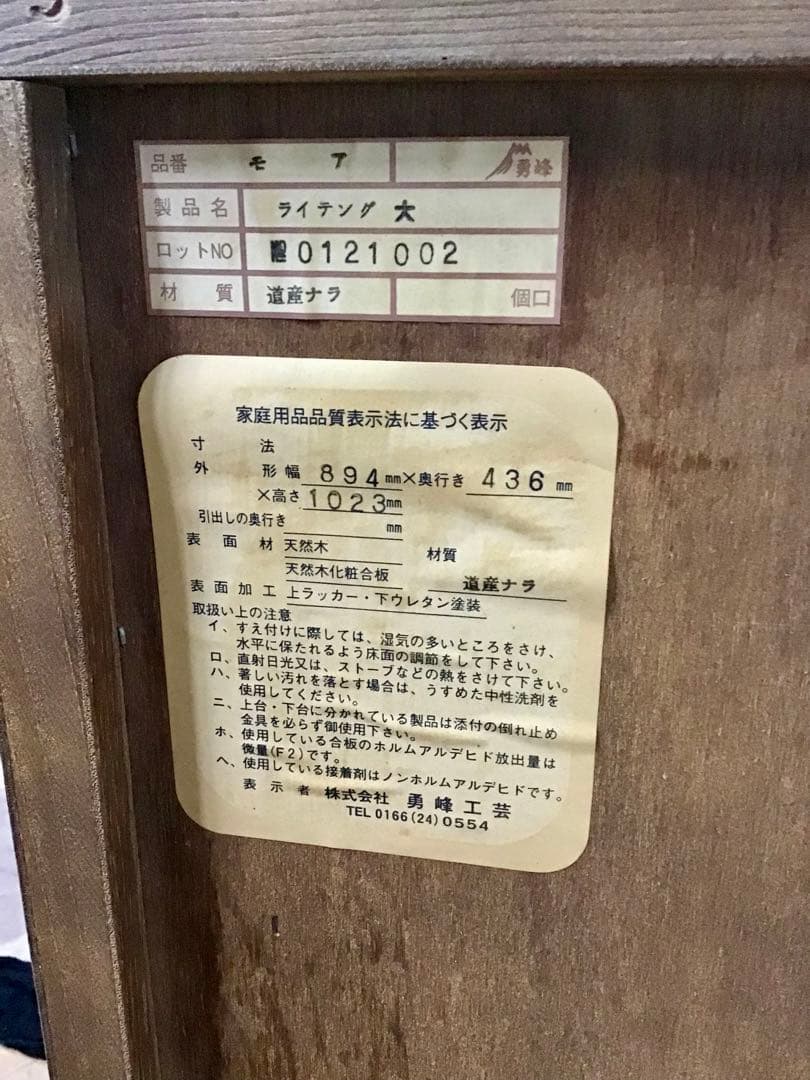 品番 モア 勇峰
製品名 ライテング 大
ロットNO 0121002
材質 道産ナラ 個口
家庭用品品質表示法に基づく表示
寸法
外形幅 894mm×奥行き 436mm
×高さ 1023mm
引出しの奥行き mm
表面材 天然木 材質
天然木化粧合板 道産ナラ
表面加工 上ラッカー・下ウレタン塗装
取扱い上の注意
イ、すえ付けに際しては、湿気の多いところをさけ、
水平に保たれるよう床面の調節をして下さい。
ロ、直射日光又は、ストーブなどの熱をさけて下さい。
ハ、著しい汚れを落とす場合は、うすめた中性洗剤を
使用してください。
ニ、上台・下台に分かれている製品は添付の倒れ止め
金具を必らず御使用下さい。
ホ、使用している合板のホルムアルデヒド放出量は
微量(F2)です。
ヘ、使用している接着剤はノンホルムアルデヒドです。
表示者 株式会社 勇峰工芸
TEL 0166(24)0554